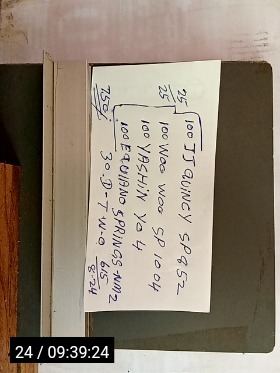 25 100 JJ QUINCY SP952
25 100 WOO WOO SP1004
100 YASHIN Y04
750/ 100 EQUIANO SPRINGS NM2
30.D-T W-O 615
8.24
24 / 09:39:24